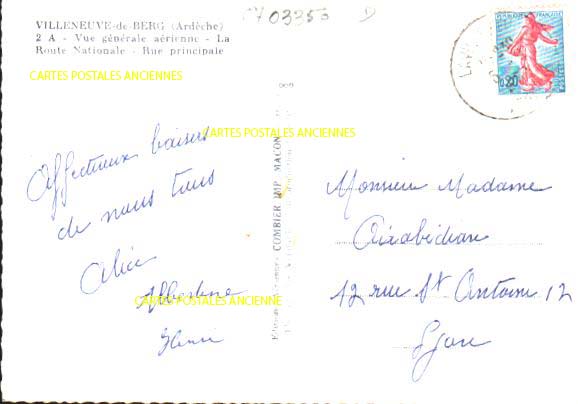 VILLENEUVE-de-BERG (Ardèche)
2 A - Vue générale aérienne - La
Route Nationale - Rue principale
0703353 D
CARTES POSTALES ANCIENNES
REPUBLIQUE FRANÇAISE
0,20
POSTES
CARTES POSTALES ANCIENNES
Affectueux baisers
de nous tous
Alice
Albertine
CARTES POSTALES ANCIENNES
Henri
COMBIER IMP. MACON
Monsieur Madame
Airabédian
12 rue St Antoine 12
Lyon